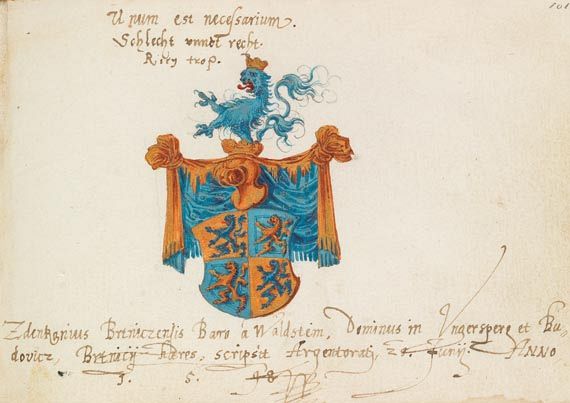 101
Unum est necessarium.
Schlecht vnndt recht.
Zdenkonius Brtniczensis Baro à Waldstein, Dominus in Vngersperg et Bu=
dovicz, Brtnicij Hæres, scripsit Argentorati, 21. Junij. ANNO
1. 5. 98